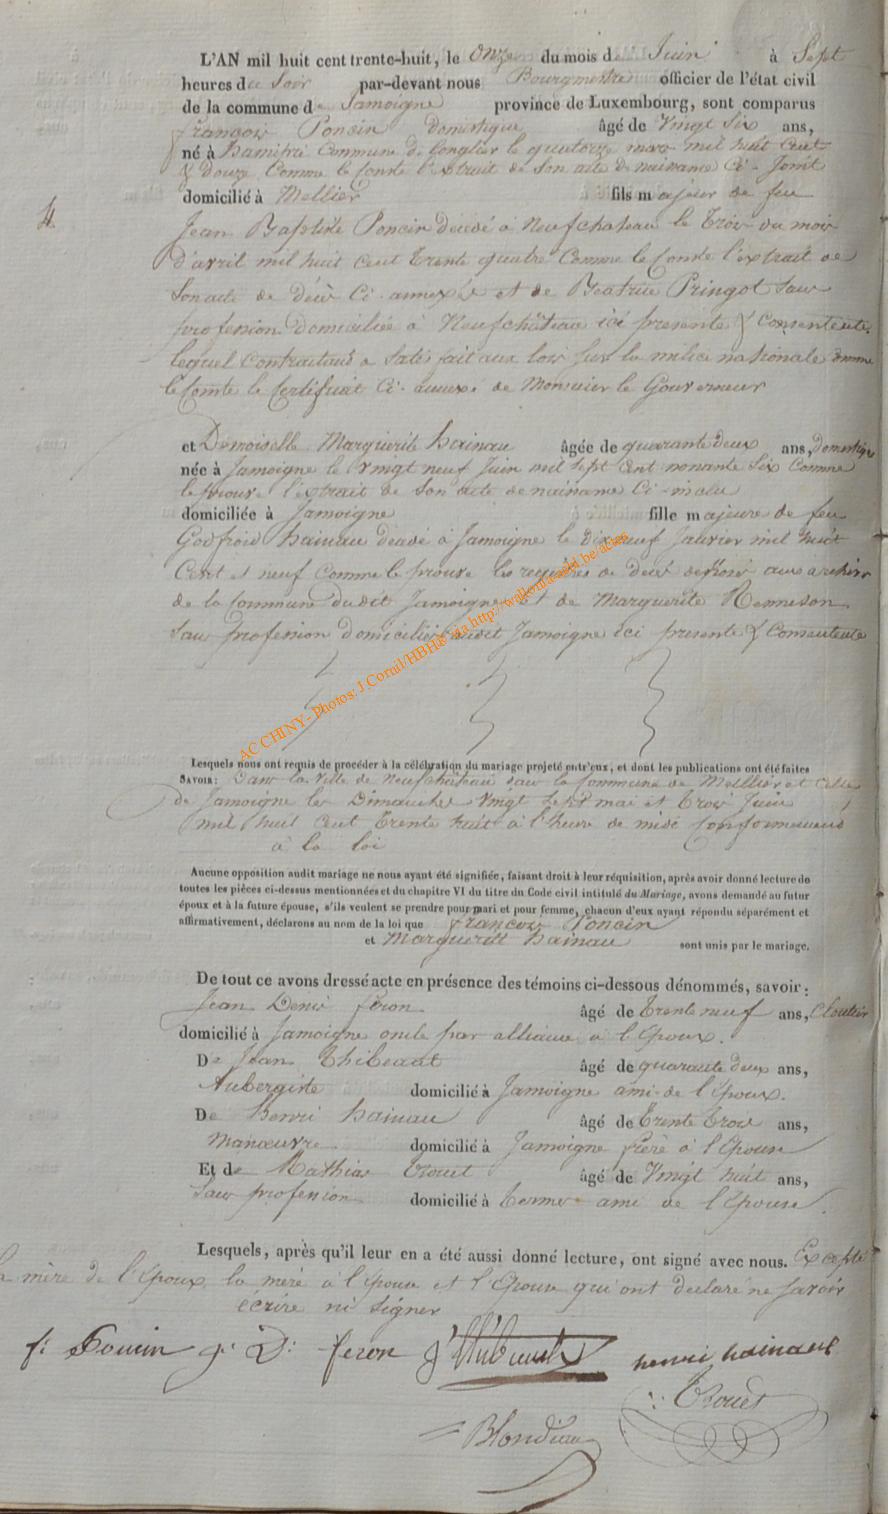 L'AN mil huit cent trente-huit, le Onze du mois de Juin à Sept
heures du Soir par-devant nous Bourgmestre officier de l'état civil
de la commune de Jamoigne province de Luxembourg, sont comparus
françois Poncin domestique âgé de Vingt Six ans,
né à hamipré Commune de Longlier le quatorze mars mil huit Cent
& douze Comme le Conste l'extrait de Son acte de naissance Ci-Joint
domicilié à Mellier fils majeur de feu
4
Jean Baptiste Poncin décédé à Neufchateau le trois du mois
d'avril mil huit Cent trente quatre Comme le Conste l'extrait de
Son acte de décès Ci-annexée et de Beatrice Pringot Sans
profession domiciliée à Neufchâteau ici presente & Consentente
lequel Contractant a Satisfait aux lois Sur la milice nationale comme
le Comte le Certificat Ci-annexé de Monsieur le Gouverneur
et Demoiselle Marguerite hainau âgée de quarante deux ans, domestique
née à Jamoigne le vingt neuf Juin mil Sept Cent nonante Six Comme
le prouve l'extrait de Son acte de naissance Ci-inclu
domiciliée à Jamoigne fille majeure de feu
Godfroid hainau décédé à Jamoigne le dix neuf Janvier mil huit
Cent et neuf Comme le prouve les registres de décès déposés aux archives
de la Commune dudit Jamoigne et de Marguerite Renneson
Sans profession domiciliée audit Jamoigne ici presente & Consentente
AC CHINY - Photos: J.Cornil/HBH& via http://wallonia-asbl.be/actes
Lesquels nous ont requis de procéder à la célébration du mariage projeté entr'eux, et dont les publications ont été faites
SAVOIR: Dans la Ville de Neufchâteau dans la Commune de Mellier et Celle
de Jamoigne les Dimanches vingt Sept mai et trois Juin
mil huit Cent trente huit à l'heure de midi Conformement
à la loi
Aucune opposition audit mariage ne nous ayant été signifiée, faisant droit à leur réquisition, après avoir donné lecture de
toutes les pièces ci-dessus mentionnées et du chapitre VI du titre du Code civil intitulé du Mariage, avons demandé au futur
époux et à la future épouse, s'ils veulent se prendre pour mari et pour femme, chacun d'eux ayant répondu séparément et
affirmativement, déclarons au nom de la loi que françois Poncin
et Marguerite hainau sont unis par le mariage.
De tout ce avons dressé acte en présence des témoins ci-dessous dénommés, savoir:
Jean Denis féron âgé de trente neuf ans, Cloutier
domicilié à Jamoigne oncle par alliance à l'époux.
De Jean thibeaut âgé de quarante deux ans,
Aubergiste domicilié à Jamoigne ami de l'époux.
De henri hainau âgé de trente trois ans,
Manœuvre domicilié à Jamoigne frère à l'épouse
Et de Mathias trouet âgé de Vingt huit ans,
Sans profession domicilié à termes ami de l'épouse.
Lesquels, après qu'il leur en a été aussi donné lecture, ont signé avec nous. Excepté
la mère de l'époux, la mère à l'épouse et l'épouse qui ont declaré ne savoir
écrire ni signer
f: Poncin J: D: feron J thibeaut henri hainaux
trouet
Blondiau